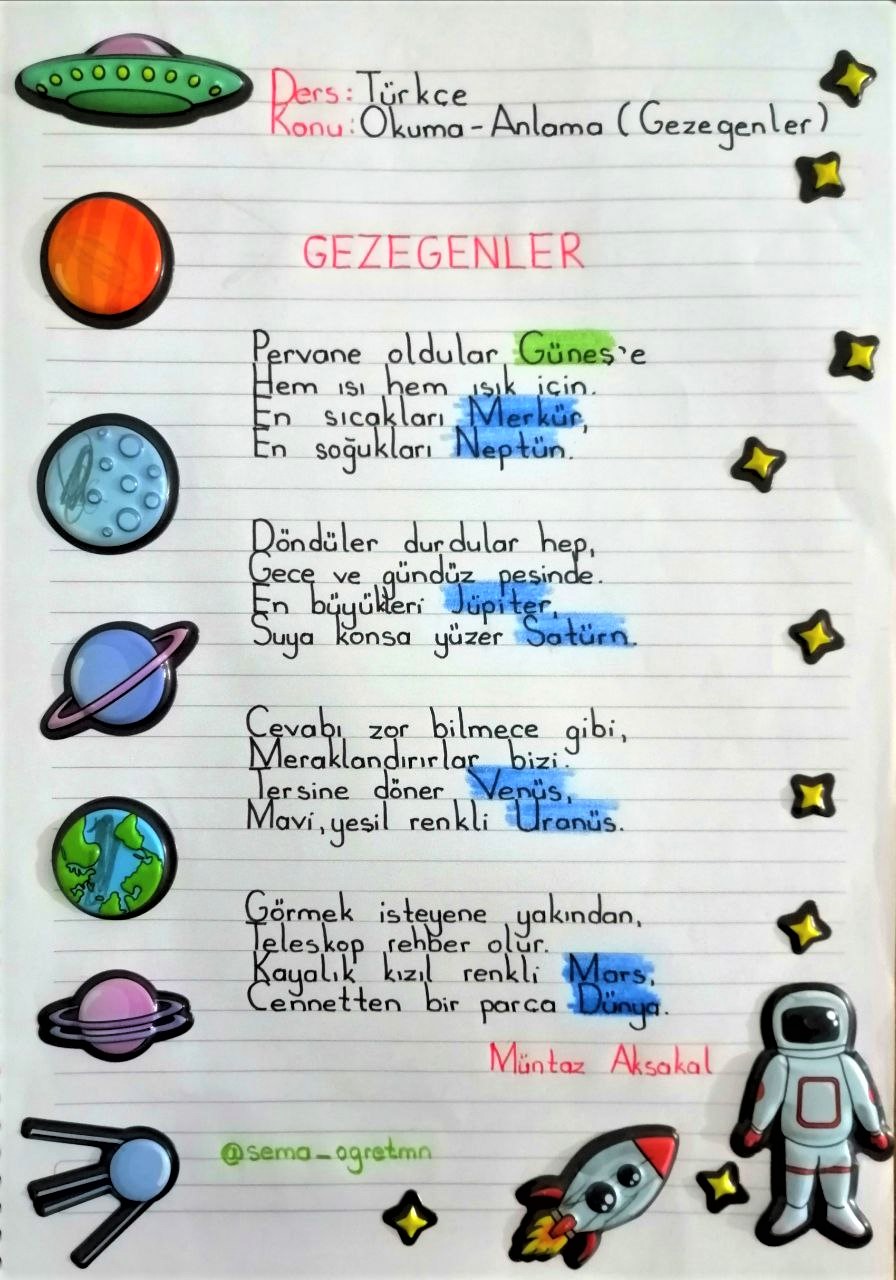 Ders: Türkçe
Konu: Okuma-Anlama (Gezegenler)
GEZEGENLER
Pervane oldular Güneş'e
Hem ısı hem ışık için.
En sıcakları Merkür,
En soğukları Neptün.
Döndüler durdular hep,
Gece ve gündüz peşinde.
En büyükleri Jüpiter,
Suya konsa yüzer Satürn.
Cevabı zor bilmece gibi,
Meraklandırırlar bizi.
Tersine döner Venüs,
Mavi, yeşil renkli Uranüs.
Görmek isteyene yakından,
Teleskop rehber olur.
Kayalık kızıl renkli Mars,
Cennetten bir parça Dünya.
Müntaz Aksakal
@sema_ogretmn